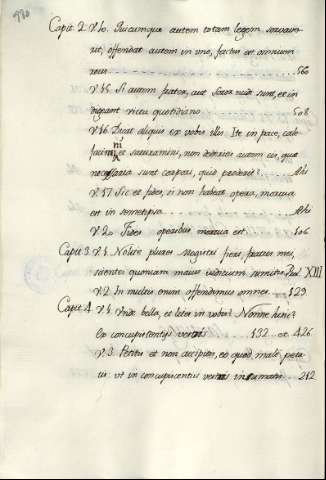 980
Capit 2. V. 10. Quicumque autem totam legem servave-
rit, offendat autem in uno, factus est omnium
reus 560
V. 15. Si autem frater, aut soror nudi sint, et in-
digeant victu quotidiano 508
V. 16. Dicat aliquis ex vobis illis: Ite in pace, cale-
facimini et saturamini, non dederitis autem eis, quæ
necessaria sunt corpori, quid proderit? ibi
V. 17. Sic et fides, si non habeat opera, mortua
est in semetipsa ibi
V. 20. Fides operibus mortua est 106
Capit 3. V. 1. Nolite plures Magistri fieri, fratres mei,
scientes quoniam maius iudicium sumitis XIII
V. 2. In multis enim offendimus omnes 129
Capit 4. V. 1. Unde bella, et lites in vobis? Nonne hinc?
Ex concupiscentijs vestris 132 et 426
V. 3. Petitis et non accipitis, eo quod male peta-
tis: ut in concupiscentijs vestris insumatis 212